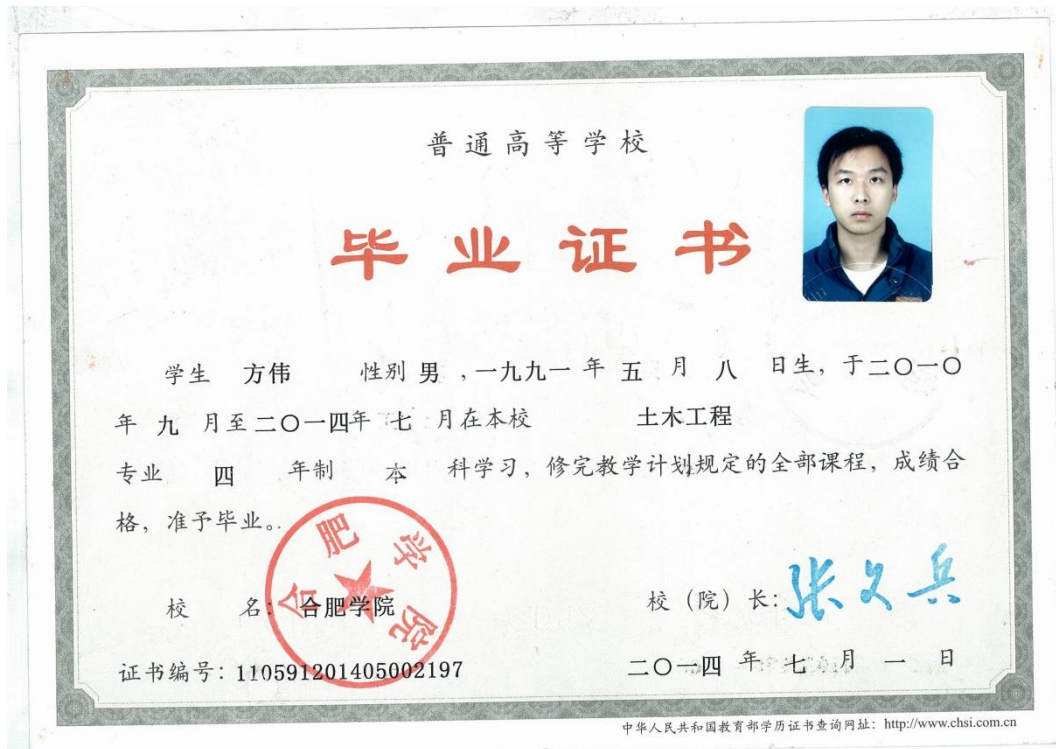 普通高等学校
毕业证书
学生 方伟 性别 男 ,一九九一 年 五 月 八 日生，于二〇一〇
年 九 月至二〇一四年 七 月在本校 土木工程
专业 四 年制 本 科学习，修完教学计划规定的全部课程，成绩合
格，准予毕业。
合肥学院
校 名：合肥学院 校（院）长：张文兵
证书编号：110591201405002197 二〇一四 年 七 月 一 日
中华人民共和国教育部学历证书查询网址：http://www.chsi.com.cn